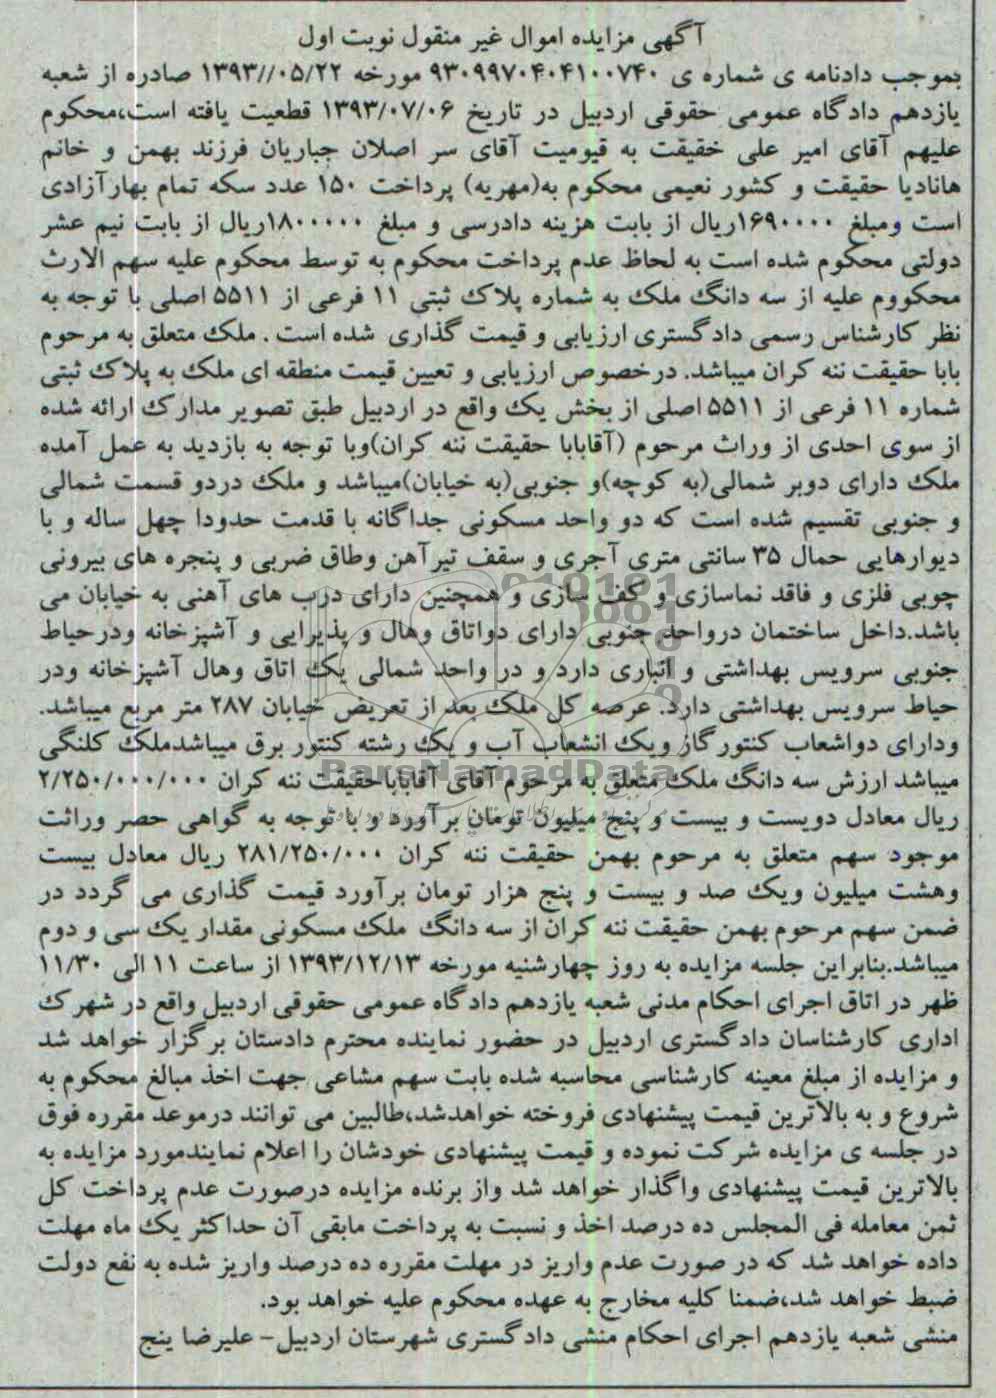 آگهی مزایده اموال غیر منقول نوبت اول
بموجب دادنامه ی شماره ی ۹۳۰۹۹۷۰۴۰۴۱۰۰۷۴۰ مورخه ۱۳۹۳//۰۵/۲۲ صادره از شعبه
یازدهم دادگاه عمومی حقوقی اردبیل در تاریخ ۱۳۹۳/۰۷/۰۶ قطعیت یافته است،محکوم
علیهم آقای امیر علی خقیقت به قیومیت آقای سر اصلان جباریان فرزند بهمن و خانم
هانادیا حقیقت و کشور نعیمی محکوم به(مهریه) پرداخت ۱۵۰ عدد سکه تمام بهارآزادی
است ومبلغ ۱۶۹۰۰۰۰ریال از بابت هزینه دادرسی و مبلغ ۱۸۰۰۰۰۰ریال از بابت نیم عشر
دولتی محکوم شده است به لحاظ عدم پرداخت محکوم به توسط محکوم علیه سهم الارث
محکووم علیه از سه دانگ ملک به شماره پلاک ثبتی ۱۱ فرعی از ۵۵۱۱ اصلی با توجه به
نظر کارشناس رسمی دادگستری ارزیابی و قیمت گذاری شده است . ملک متعلق به مرحوم
بابا حقیقت ننه کران میباشد. درخصوص ارزیابی و تعیین قیمت منطقه ای ملک به پلاک ثبتی
شماره ۱۱ فرعی از ۵۵۱۱ اصلی از بخش یک واقع در اردبیل طبق تصویر مدارک ارائه شده
از سوی احدی از وراث مرحوم (آقابابا حقیقت ننه کران)وبا توجه به بازدید به عمل آمده
ملک دارای دوبر شمالی(به کوچه)و جنوبی(به خیابان)میباشد و ملک دردو قسمت شمالی
و جنوبی تقسیم شده است که دو واحد مسکونی جداگانه با قدمت حدودا چهل ساله و با
دیوارهایی حمال ۳۵ سانتی متری آجری و سقف تیرآهن وطاق ضربی و پنجره های بیرونی
چوبی فلزی و فاقد نماسازی و کف سازی و همچنین دارای درب های آهنی به خیابان می
باشد.داخل ساختمان درواحد جنوبی دارای دواتاق وهال و پذیرایی و آشپزخانه ودرحیاط
جنوبی سرویس بهداشتی و انباری دارد و در واحد شمالی یک اتاق وهال آشپزخانه ودر
حیاط سرویس بهداشتی دارد. عرصه کل ملک بعد از تعریض خیابان ۲۸۷ متر مربع میباشد.
ودارای دواشعاب کنتورگاز ویک انشعاب آب و یک رشته کنتور برق میباشدملک کلنگی
میباشد ارزش سه دانگ ملک متعلق به مرحوم آقای آقاباباحقیقت ننه کران ۲/۲۵۰/۰۰۰/۰۰۰
ParsNamadData
ریال معادل دویست و بیست و پنج میلیون تومان برآورد و با توجه به گواهی حصر وراثت
موجود سهم متعلق به مرحوم بهمن حقیقت ننه کران ۲۸۱/۲۵۰/۰۰۰ ریال معادل بیست
وهشت میلیون ویک صد و بیست و پنج هزار تومان برآورد قیمت گذاری می گردد در
ضمن سهم مرحوم بهمن حقیقت ننه کران از سه دانگ ملک مسکونی مقدار یک سی و دوم
میباشد.بنابراین جلسه مزایده به روز چهارشنبه مورخه ۱۳۹۳/۱۲/۱۳ از ساعت ۱۱ الی ۱۱/۳۰
ظهر در اتاق اجرای احکام مدنی شعبه یازدهم دادگاه عمومی حقوقی اردبیل واقع در شهرک
اداری کارشناسان دادگستری اردبیل در حضور نماینده محترم دادستان برگزار خواهد شد
و مزایده از مبلغ معینه کارشناسی محاسبه شده بابت سهم مشاعی جهت اخذ مبالغ محکوم به
شروع و به بالاترین قیمت پیشنهادی فروخته خواهدشد،طالبین می توانند درموعد مقرره فوق
در جلسه ی مزایده شرکت نموده و قیمت پیشنهادی خودشان را اعلام نمایندمورد مزایده به
بالاترین قیمت پیشنهادی واگذار خواهد شد واز برنده مزایده درصورت عدم پرداخت کل
ثمن معامله فی المجلس ده درصد اخذ و نسبت به پرداخت مابقی آن حداکثر یک ماه مهلت
داده خواهد شد که در صورت عدم واریز در مهلت مقرره ده درصد واریز شده به نفع دولت
ضبط خواهد شد،ضمنا کلیه مخارج به عهده محکوم علیه خواهد بود.
منشی شعبه یازدهم اجرای احکام منشی دادگستری شهرستان اردبیل- علیرضا ینج